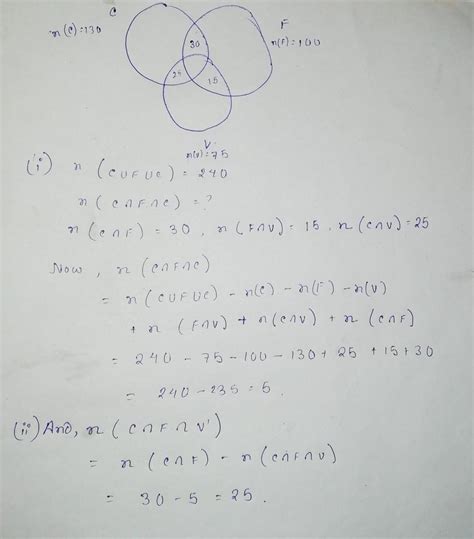 C
n(C):130
F
n(F):100
30
25
15
V
n(V)=75
(i) n (C∪F∪C) = 240
n (C∩F∩C) = ?
n (C∩F) = 30, n (F∩V) = 15, n (C∩V) = 25
Now, n (C∩F∩C)
= n (C∪F∪C) - n(C) - n(F) - n(V)
+ n (F∩V) + n(C∩V) + n (C∩F)
= 240 - 75 - 100 - 130 + 25 + 15 + 30
= 240 - 235 = 5.
(ii) And, n (C∩F∩V')
= n (C∩F) - n (C∩F∩V)
= 30 - 5 = 25.